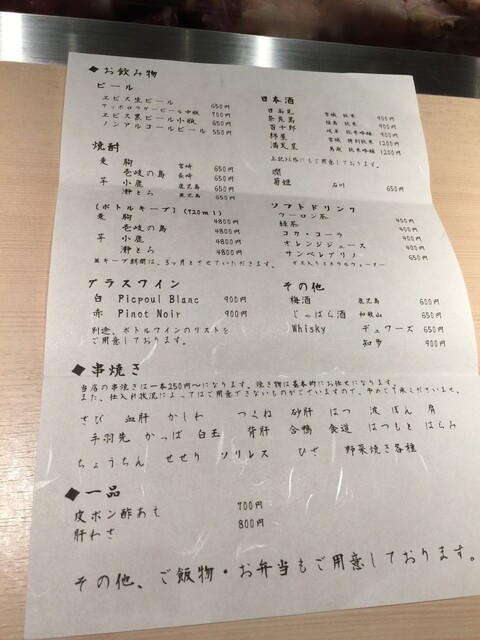 ◆お飲み物
ビール
ヱビス生ビール 650円
サッポロラガービール中瓶 700円
ヱビス黒ビール小瓶 650円
ノンアルコールビール 550円
焼酎
麦 駒 宮崎 650円
壱岐の島 長崎 650円
芋 小鹿 鹿児島 650円
瀞とろ 鹿児島 650円
(ボトルキープ)(720ml)
麦 駒 4800円
壱岐の島 4800円
芋 小鹿 4800円
瀞とろ 4800円
※キープ期間は、3ヶ月とさせていただきます。
グラスワイン
白 Picpoul Blanc 900円
赤 Pinot Noir 900円
別途、ボトルワインのリストを
ご用意しております。
日本酒
日高見 宮城 純米 900円
奈良萬 福島 純米 900円
百十郎 岐阜 純米吟醸 900円
柿星 宮城 特別純米 1200円
満天星 鳥取 純米吟醸 1200円
上記以外にもご用意しております。
燗
菊姫 石川 650円
ソフトドリンク
ウーロン茶 400円
緑茶 400円
コカ・コーラ 400円
オレンジジュース 400円
サンペレグリノ 650円
ガス入りミネラルウォーター
その他
梅酒 鹿児島 600円
じゃばら酒 和歌山 650円
Whisky デュワーズ 650円
知多 900円
◆串焼き
当店の串焼きは一本250円〜になります。焼き物は基本的にお任せになります。
また、仕入れ状況によってはご用意できないものがございますので、予めご了承くださいませ。
さび 血肝 かしわ つくね 砂肝 はつ 波 ぼん 肩
手羽先 かっぱ 白玉 背肝 合鴨 食道 はつもと はらみ
ちょうちん せせり ソリレス ひざ 野菜焼き各種
◆一品
皮ポン酢あえ 700円
肝わさ 800円
その他、ご飯物・お弁当もご用意しております。